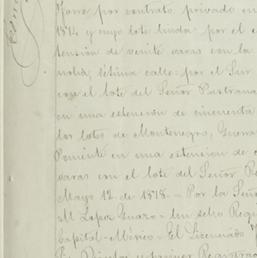 Parra por contrato privado en
1874 y cuyo lote linda: por el
tensión de veinte varas con la
séptima calle: por el Sur
con el lote del Señor Pastrana
en una estensión de cincuenta
los lotes de Montenegro, Guerra
Poniente en una estensión de
varas con el lote del Señor
Mayo 12 de 1878.- Por la Seño
M. Lopez Guazo - Un sello
Capital - México.- El Licenciado